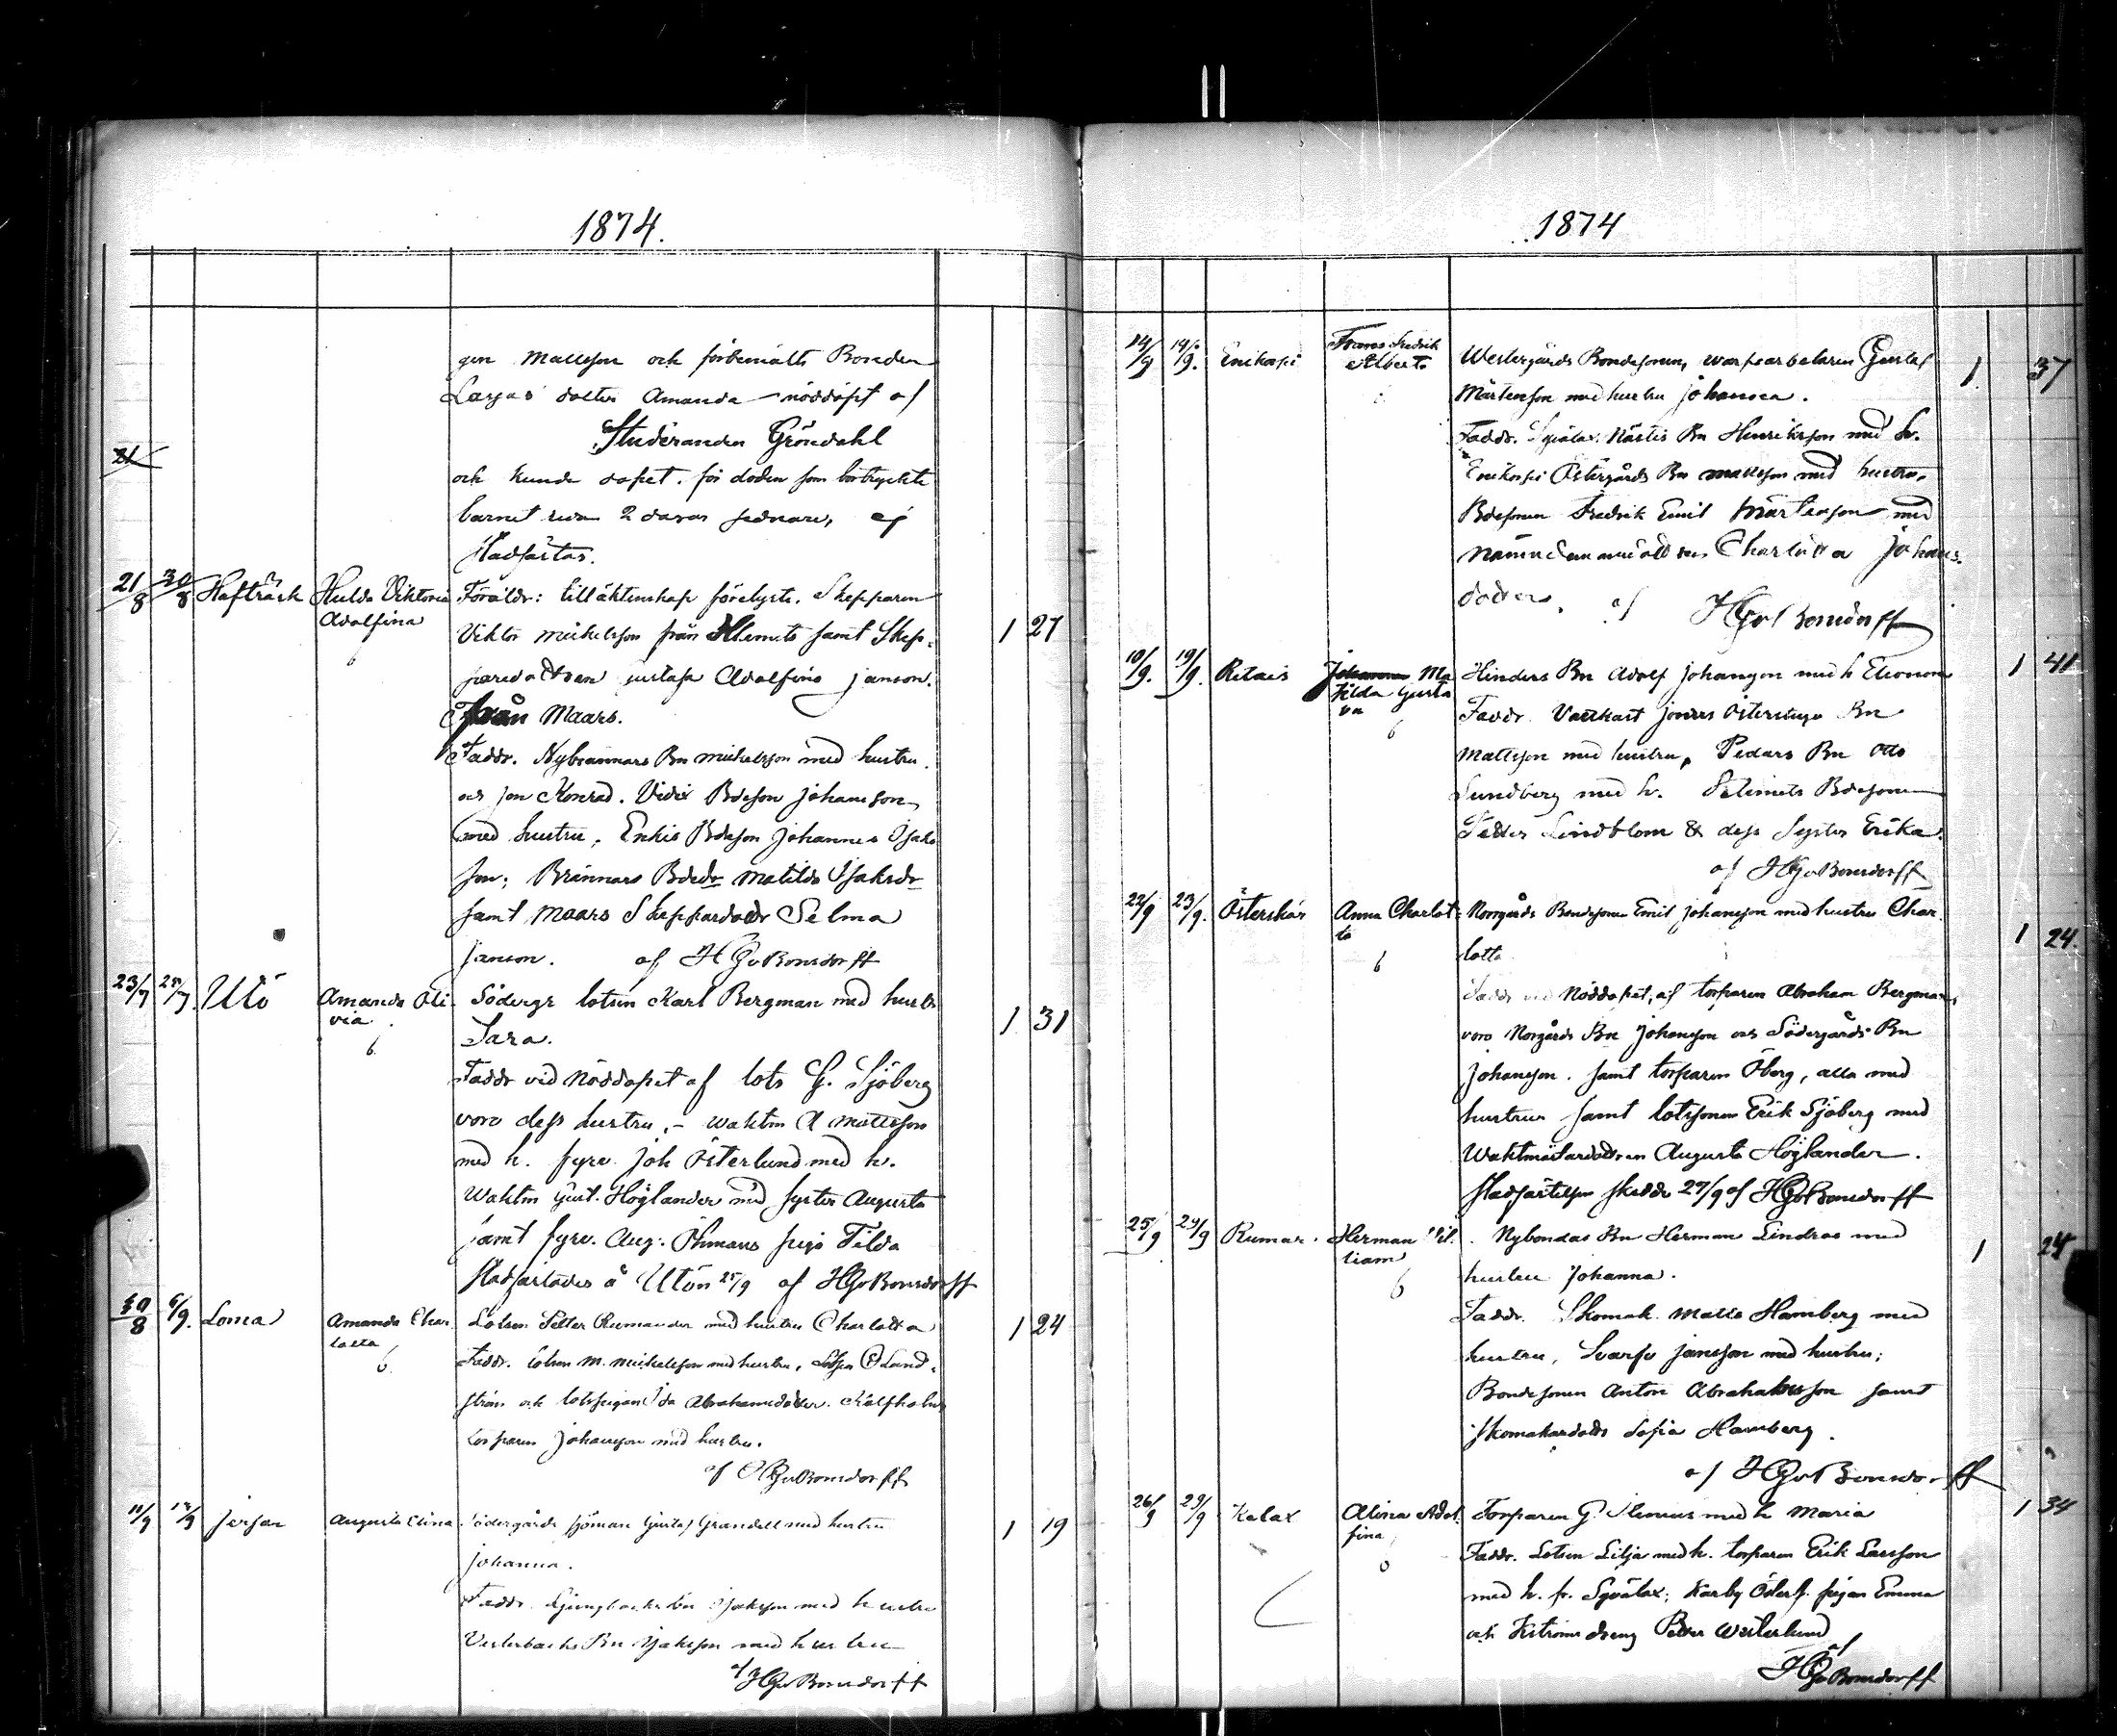 1874.
gen Mattsson och förbemälte Bonden
Larsas dotter Amanda – nöddöpt af
Studeranden Gröndahl
21
och kunde dopet, för döden som bortryckte
barnet redan 2 dagar sednare, ej
stadfästas.
21/8 30/8 Hafträsk Hulda Viktoria Adolfina
Föräldr: till äktenskap förelyste. Skepparen
Viktor Mickelsson från samt Skep-
paredottren Gustafa Adolfina Janson.
Från Maars.
1 27
Faddr. Nybrännars Bn Mickelsson med hustru
och son Konrad. Bdeson Johansson
med hustru, Erkis Bdeson Johannes Isaks
son; Brännars Bdedr Matilda Isaksdr
samt Maars Skeppardottr Selma
Janson. af HGvBonsdorff
23/7 25/7. Utö Amanda Oli-
via. 6
Södergr lotsen Karl Bergman med hustr
Sara.
1 31
Faddr vid Nöddopet af lots G. Sjöberg
voro dess hustru, – waktm A Mattsson
med h. fyrv. Joh Österlund med h.
Waktm Gust. Höglander med syster Augusta
samt fyrv. Aug. Öhmans piga Tilda
Stadfästades å Utön 25/9 af HGvBonsdorff
30/8 6/9. Loma Amanda Char
lotta 6
Lotsen Petter Rumander med hustru Charlotta
1 24
Faddr. lotsen M. Mickelsson med hustru, Lotsen Sand-
ström och lotspigan Ida Abrahamsdotter. Kalfholms
torparen Johansson med hustru.
af HGvBonsdorff
11/9 13/9 Jersar Augusta Elina
Södergårds sjöman Gustaf Grandell med hustru
Johanna.
1 19
Faddr. Bn Isaksson med hustru
Vesterbacks Bn Isaksson med hustru
af HGvBonsdorff
1874
14/9 19/9. Enikosi Frans Fredrik
Albert
Westergårds Bondesonen, warfsarbetaren Gustaf
Mårtensson med hustru Johanna.
1 37
Faddr. Sqvälax Närtis Bn Henriksson med h.
Enikosi Östergårds Bn Mattsson med hustru,
Bdesonen Fredrik Emil Mårtensson med
Nämndemansdottren Charlotta Johans-
dotter. af HGvBonsdorff
10/9. 19/9. Retais Johanna Ma
tilda Gusta
va 6
Hinders Bn Adolf Johansson med h Eleonora
1 41
Faddr. Vattkast Jonses Österstuga Bn
Mattsson med hustru, Pedars Bn Otto
Sundberg med h. Bdesonen
Petter Lindblom & dess Syster Erika.
af HGvBonsdorff
22/9 23/9. Österskär Anna Charlot-
ta 6
Norrgårds Bondesonen Emil Johansson med hustru Char
lotta
1 24.
Faddr vid Nöddopet, af torparen Abraham Bergman,
voro Norrgårds Bn Johansson och Södergårds Bn
Johansson. samt torparen Öberg, alla med
hustrur samt lotssonen Erik Sjöberg med
Waktmästardottren Augusta Höglander.
Stadfästelsen skedde 27/9 af HGvBonsdorff
25/9 29/9 Rumar. Herman Vil-
liam 6
Nybondas Bn Herman Lindroos med
hustru Johanna.
1 24
Faddr. Skomak. Matts Hamberg med
hustru, Svarfv Jansson med hustru;
Bondesonen Anton Abrahamsson samt
Skomakardottr Sofia Hamberg.
af HGvBonsdorff
26/9 29/9 Kalax Alina Adol
fina
Torparen G. Stenius med h Maria
1 34
Faddr. Lotsen Lilja med h. torparen Erik Larsson
med h. fr. Sqvälax; Karby Österg. pigan Emma
och dreng Petter Westerlund
af
HGvBonsdorff